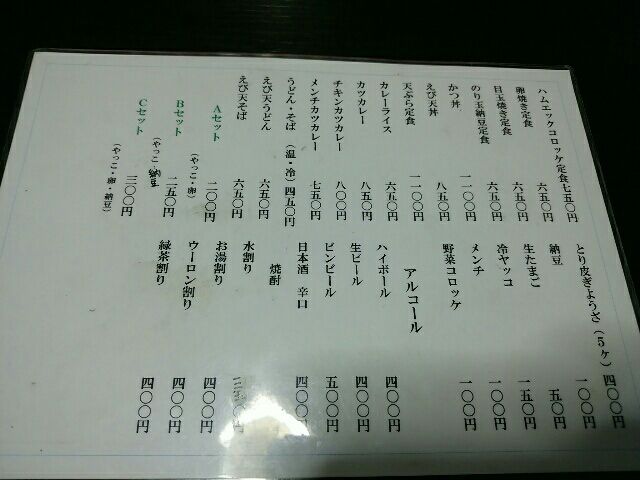 ハムエッグコロッケ定食七五〇円
卵焼き定食 六五〇円
目玉焼き定食 六五〇円
のり玉納豆定食 六五〇円
かつ丼 一一〇〇円
えび天丼 八五〇円
天ぷら定食 一一〇〇円
カレーライス 六五〇円
カツカレー 八五〇円
チキンカツカレー 八〇〇円
メンチカツカレー 七五〇円
うどん・そば(温・冷)四五〇円
えび天うどん 六五〇円
えび天そば 六五〇円
Aセット 二〇〇円
(やっこ・卵)
Bセット 二五〇円
(やっこ・納豆)
Cセット 三〇〇円
(やっこ・卵・納豆)
とり皮ぎょうざ(5ヶ) 四〇〇円
納豆 一〇〇円
生たまご 五〇円
冷ヤッコ 一五〇円
メンチ 一〇〇円
野菜コロッケ 一〇〇円
アルコール
ハイボール 四〇〇円
生ビール 四〇〇円
ビンビール 五〇〇円
日本酒 辛口 四〇〇円
焼酎
水割り
お湯割り 四〇〇円
ウーロン割り 四〇〇円
緑茶割り 四〇〇円